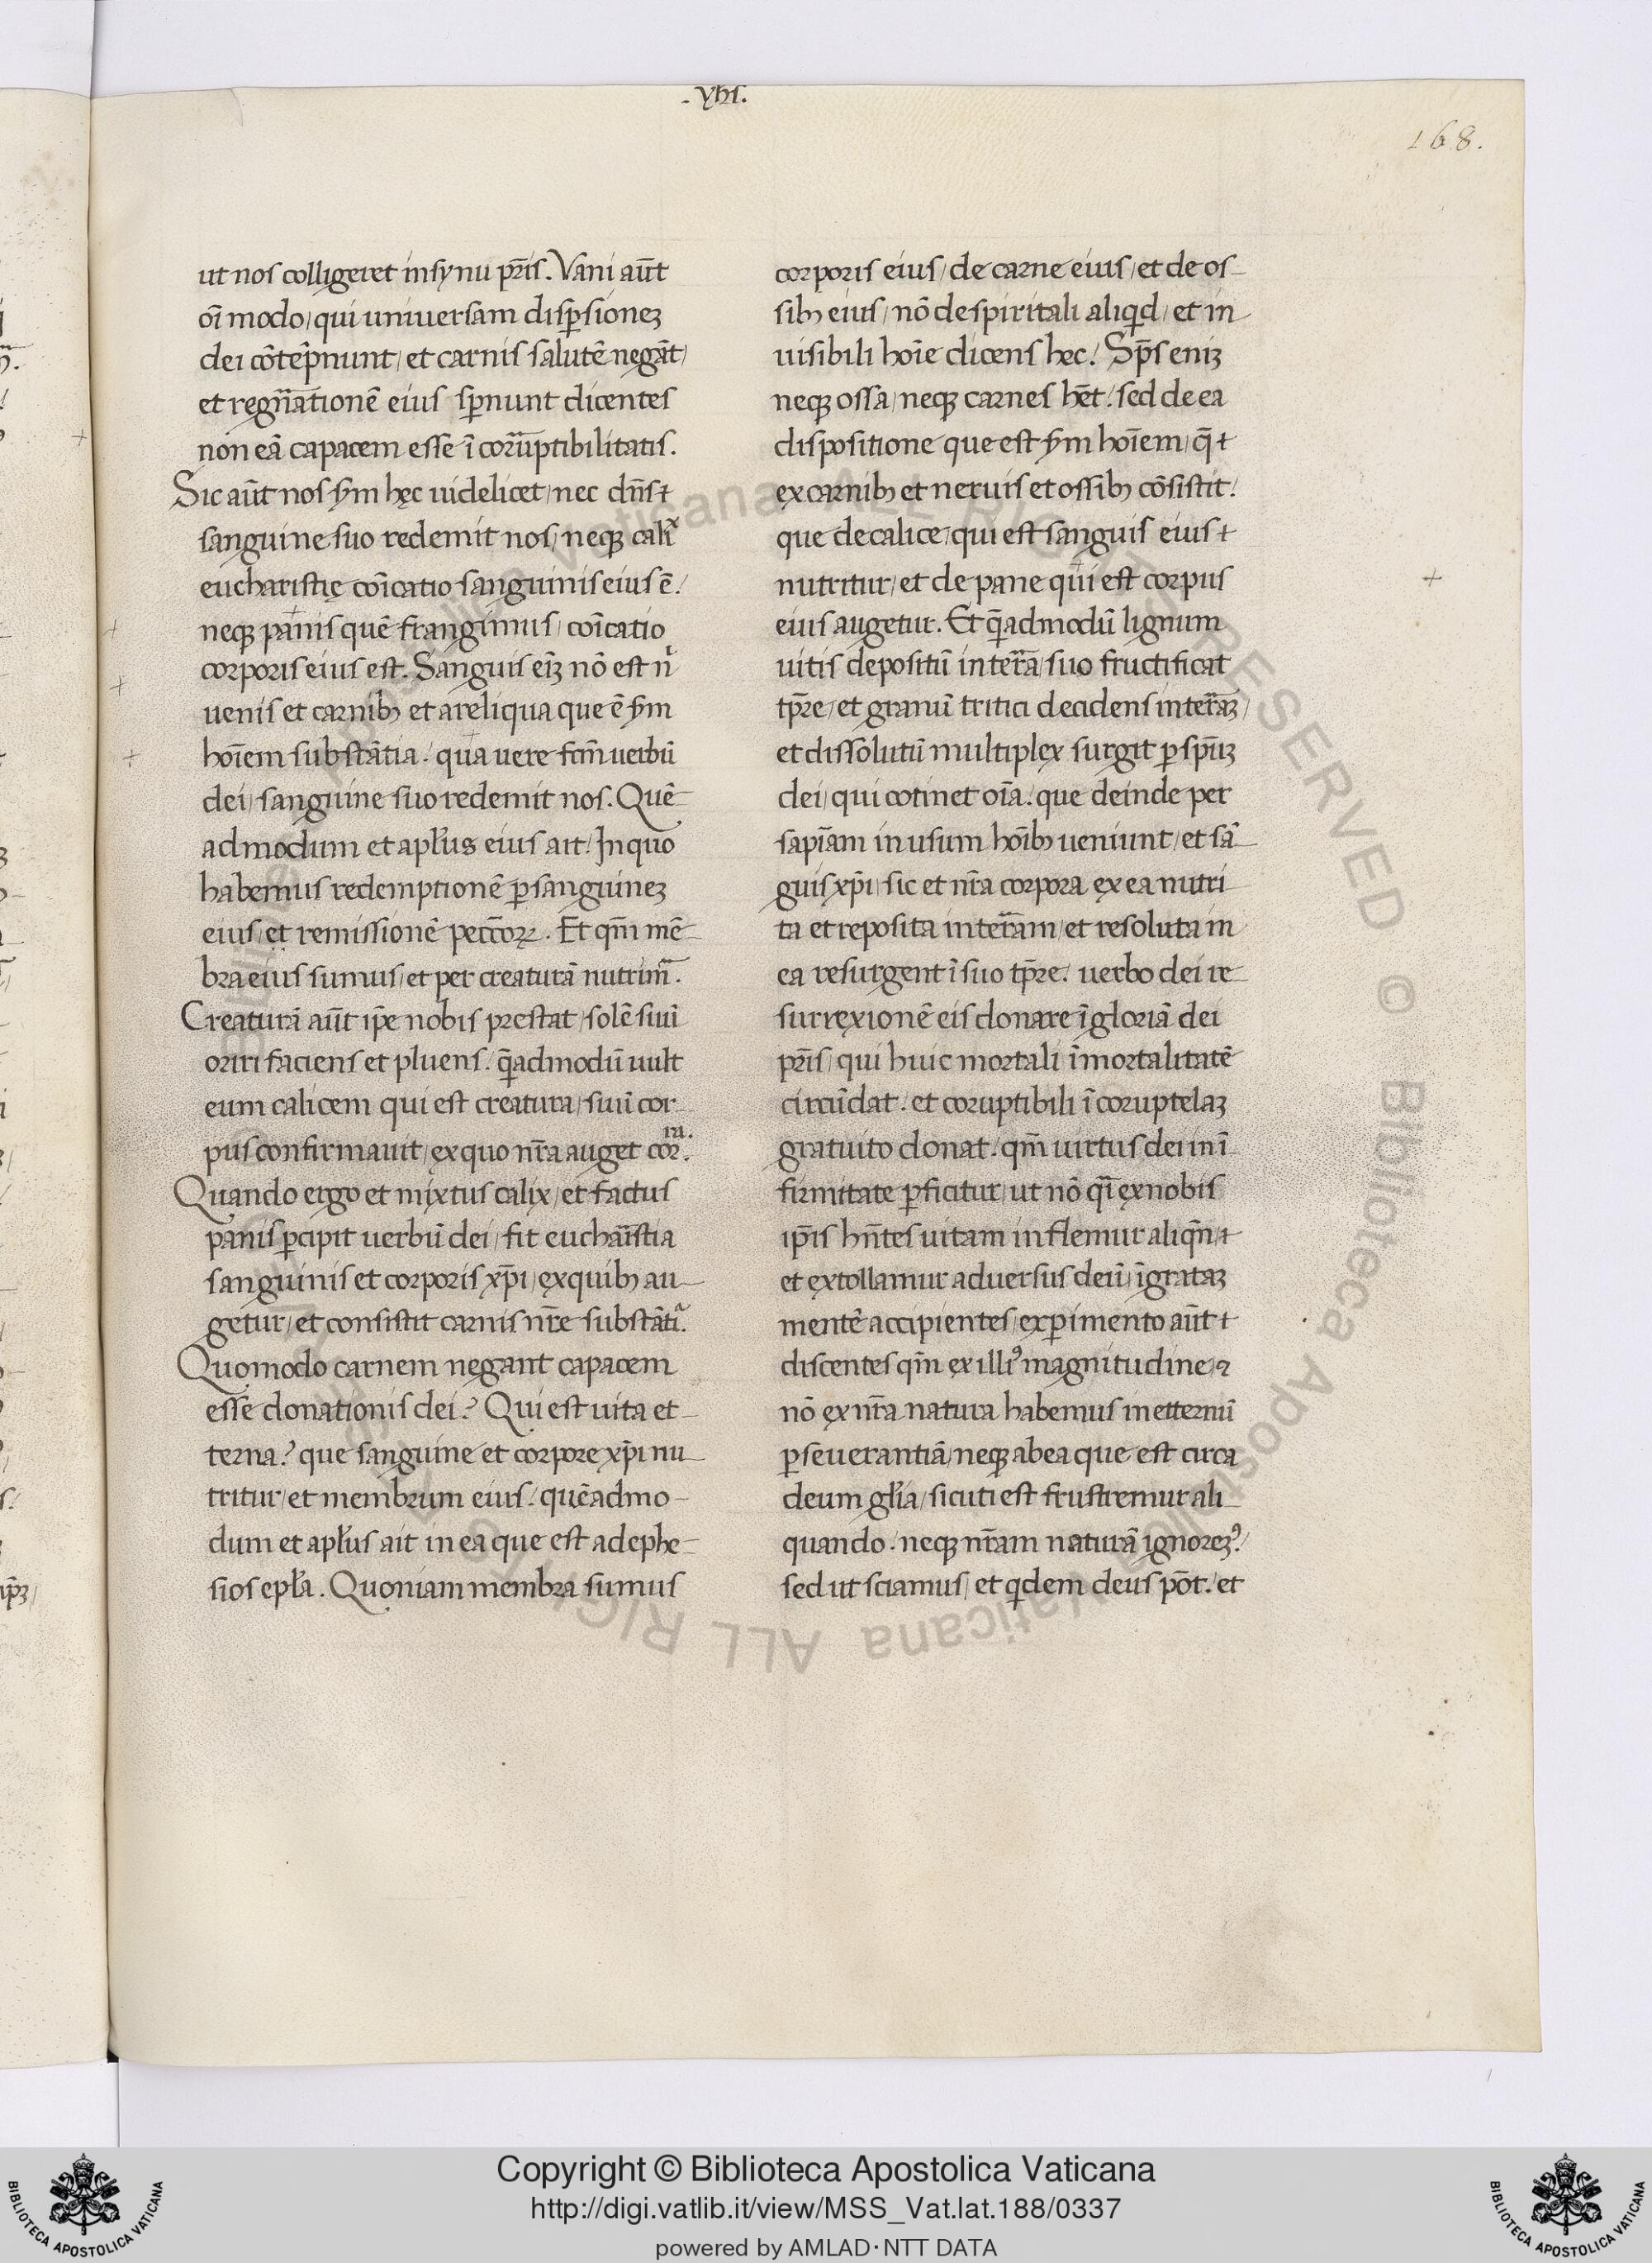 .yhs.
168.
ut nos colligeret in synu pr̄is. Vani aūt
oī modo / qui uniuersam disp̱sioneꝫ
dei cōtēpnunt / et carnis salutē negāt /
et regn̄ationē eius sp̱nunt dicentes
non eā capacem esse ī coruptibilitatis.
Sic aūt nos s̄m hęc uidelicet / nec dn̄s
sanguine suo redemit nos / neqꝫ cali
eucharistię cōīcatio sanguinis eius ē /
neqꝫ panis quē frangimus / cōīcatio
corporis eius est. Sanguis eīꝫ nō est n
uenis et carnibꝫ et a reliqua que ē s̄m
hoīem substātia. qua uere fcm̄ uerbū
dei / sanguine suo redemit nos. Quē
admodum et apl̄us eius ait / In quo
habemus redemptionē ꝑ sanguineꝫ
eius / et remissionē pecc̄oꝝ. Et qm̄ mē
bra eius sumus / et per creaturā nutrim̄.
Creaturā aūt ip̄e nobis prestat / solē suū
oriri faciens et pluens. q̄admodū uult
eum calicem qui est creatura / suū cor
pus confirmauit / ex quo nr̄a auget cor.ra.
Quando ergo et mixtus calix / et factus
panis ꝑcipit uerbū dei / fit eucharistia
sanguinis et corporis xp̄i / ex quibꝫ au
getur / et consistit carnis nr̄e substāti.
Quomodo carnem negant capacem
esse donationis dei? Qui est uita et
terna? que sanguine et corpore xp̄i nu
tritur / et membrum eius. quēadmo
dum et apl̄us ait in ea que est ad ephe
sios epl̄a. Quoniam membra sumus
corporis eius / de carne eius / et de os
sibꝫ eius / nō de spiritali aliqd / et in
uisibili hoīe dicens hec. Sp̄s eniꝫ
neqꝫ ossa / neqꝫ carnes hēt / sed de ea
dispositione que est s̄m hoīem / q̄
ex carnibꝫ et neruis et ossibꝫ cōsistit.
que de calice / qui est sanguis eius
nutritur / et de pane qui est corpus
eius augetur. Et q̄admodū lignum
uitis depositū in terrā / suo fructificat
tp̄re / et granū tritici decidens in terraꝫ /
et dissolutū multiplex surgit ꝑ sp̄uꝫ
dei / qui cōtinet oīa. que deinde per
sapīam in usum hoībꝫ ueniunt / et sā
guis xp̄i / sic et nr̄a corpora ex ea nutri
ta et reposita in terram / et resoluta in
ea resurgent ī suo tp̄re. uerbo dei re
surrexionē eis donare ī gloriā dei
pr̄is / qui huic mortali īmortalitatē
circūdat. et coruptibili ī coruptelaꝫ
gratuito donat. qm̄ uirtus dei in ī
firmitate ꝑficitur / ut nō q̄i ex nobis
ip̄is hn̄tes uitam inflemur aliqn̄
et extollamur aduersus deū / īgrataꝫ
mentē accipientes / exꝑimento aūt
discentes qm̄ ex illiꝰ magnitudine
nō ex nr̄a natura habemus in etternū
ꝑseuerantiā / neqꝫ ab ea que est circa
deum gl̄ia / sicuti est frustremur ali
quando. neqꝫ nr̄am naturā ignoreꝫꝰ /
sed ut sciamus / et qdem deus pōt. et
Copyright © Biblioteca Apostolica Vaticana
http://digi.vatlib.it/view/MSS_Vat.lat.188/0337
powered by AMLAD·NTT DATA
BIBLIOTECA APOSTOLICA VATICANA
BIBLIOTECA APOSTOLICA VATICANA